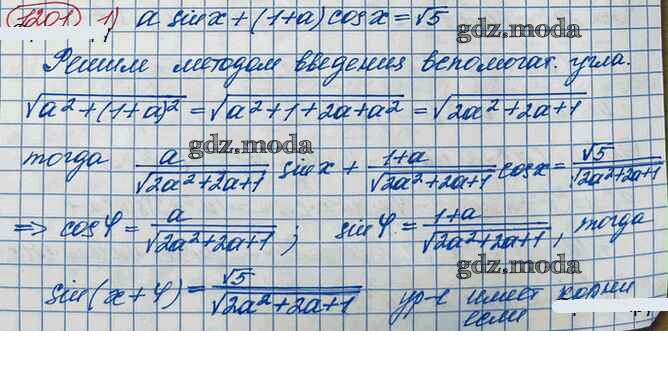 1201 1) a sin x + (1+a) cos x = √5
gdz.moda
Решим методом введения вспомогат. угла.
√(a²+(1+a)²) = √(a²+1+2a+a²) = √(2a²+2a+1)
gdz.moda
тогда a/√(2a²+2a+1) sin x + 1+a/√(2a²+2a+1) cos x = √5/√(2a²+2a+1)
gdz.moda
=> cos φ = a/√(2a²+2a+1) ; sin φ = 1+a/√(2a²+2a+1), тогда
gdz.moda
sin(x+φ) = √5/√(2a²+2a+1) ур-е имеет корни
если